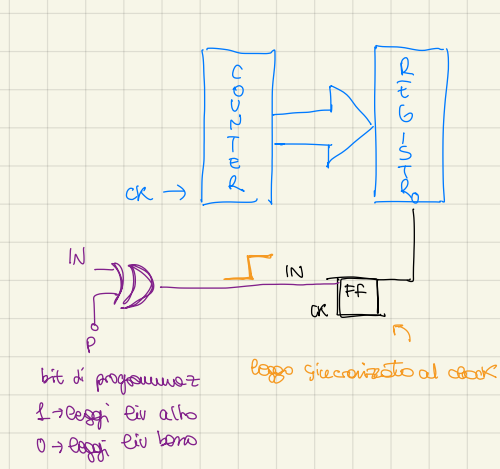 COUNTER
REGISTRO
CK →
IN
IN
FF
CK
P
leggo sincronizzato al clock
bit di programmaz
1 → leggi liv alto
0 → leggi liv basso